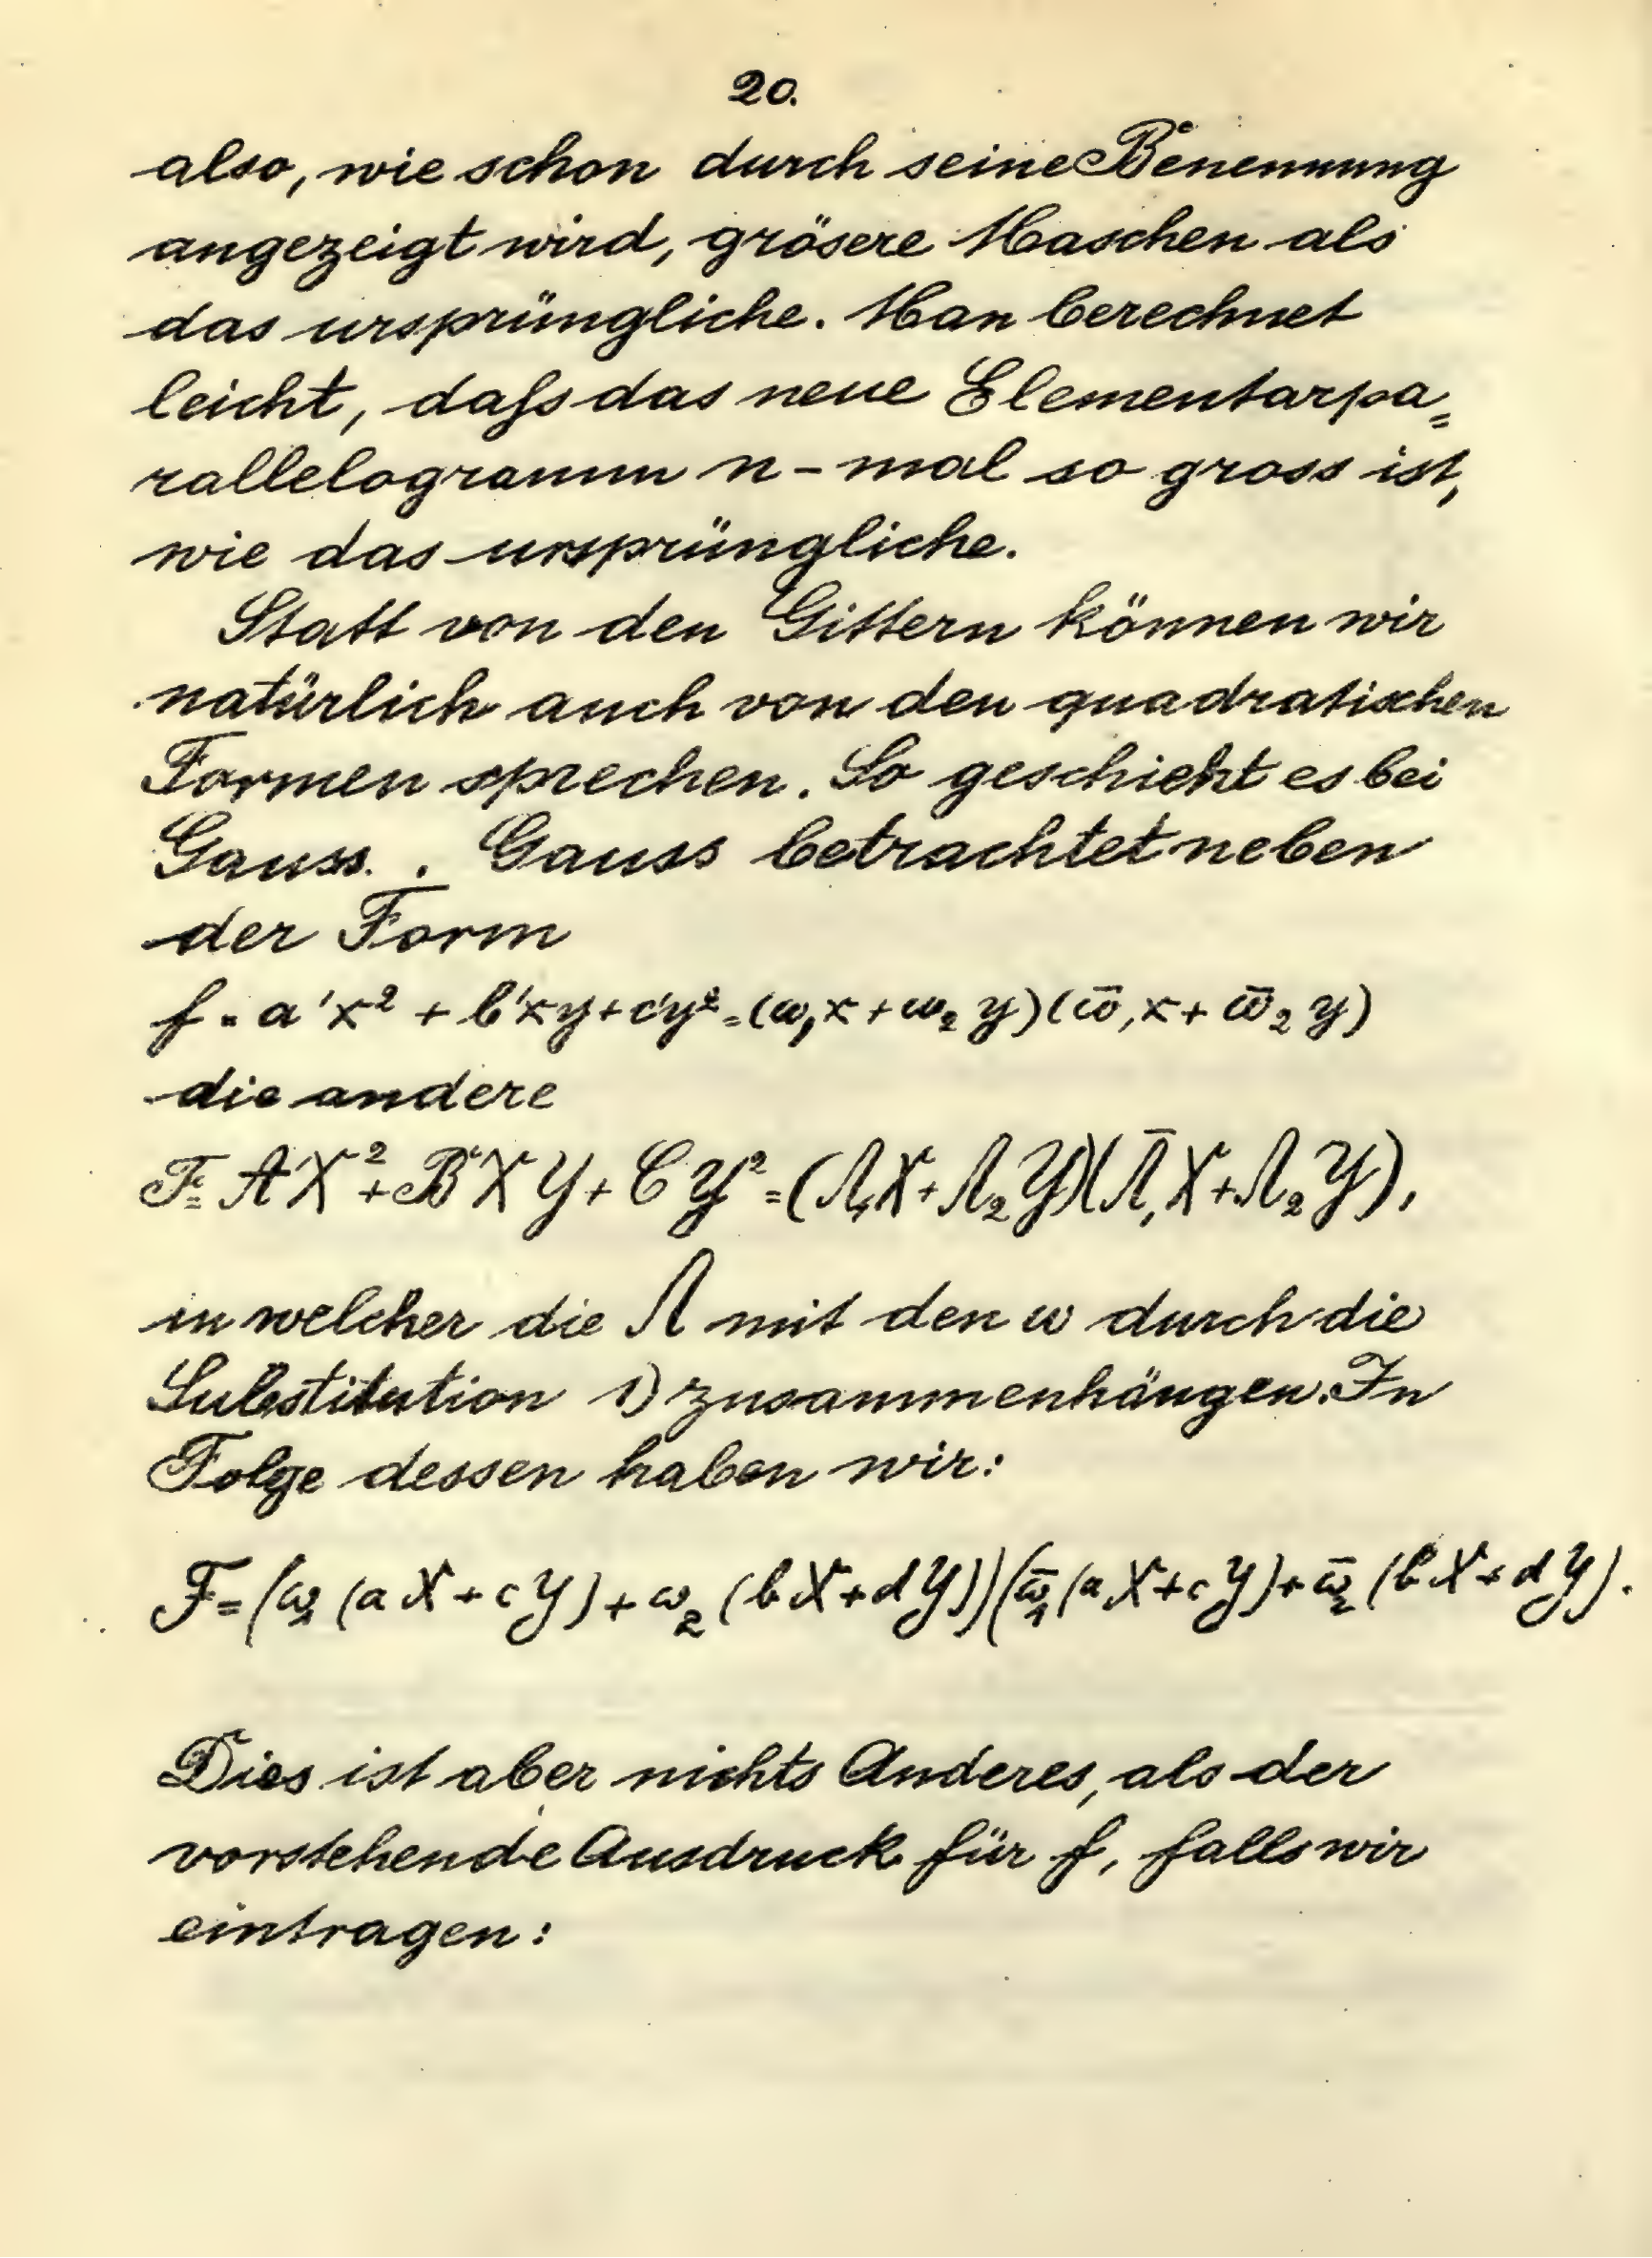 20.
also, wie schon durch seine Benennung
angezeigt wird, grösere Maschen als
das ursprüngliche. Man berechnet
leicht, daſs das neue Elementarpa=
rallelogramm n-mal so gross ist,
wie das ursprüngliche.
Statt von den Gittern können wir
natürlich auch von den quadratischen
Formen sprechen. So geschieht es bei
Gauss. . Gauss betrachtet neben
der Form
f = a'x² + b'xy + c'y² = (ω₁x + ω₂y)(ω̄₁x + ω̄₂y)
die andere
F = AX² + BXY + CY² = (Λ₁X + Λ₂Y)(Λ̄₁X + Λ₂Y),
in welcher die Λ mit den ω durch die
Substitution 1) zusammenhängen. In
Folge dessen haben wir:
F = (ω₁(aX + cY) + ω₂(bX + dY))(ω̄₁(aX + cY) + ω̄₂(bX + dY).
Dies ist aber nichts Anderes, als der
vorstehende Ausdruck für f, falls wir
eintragen: